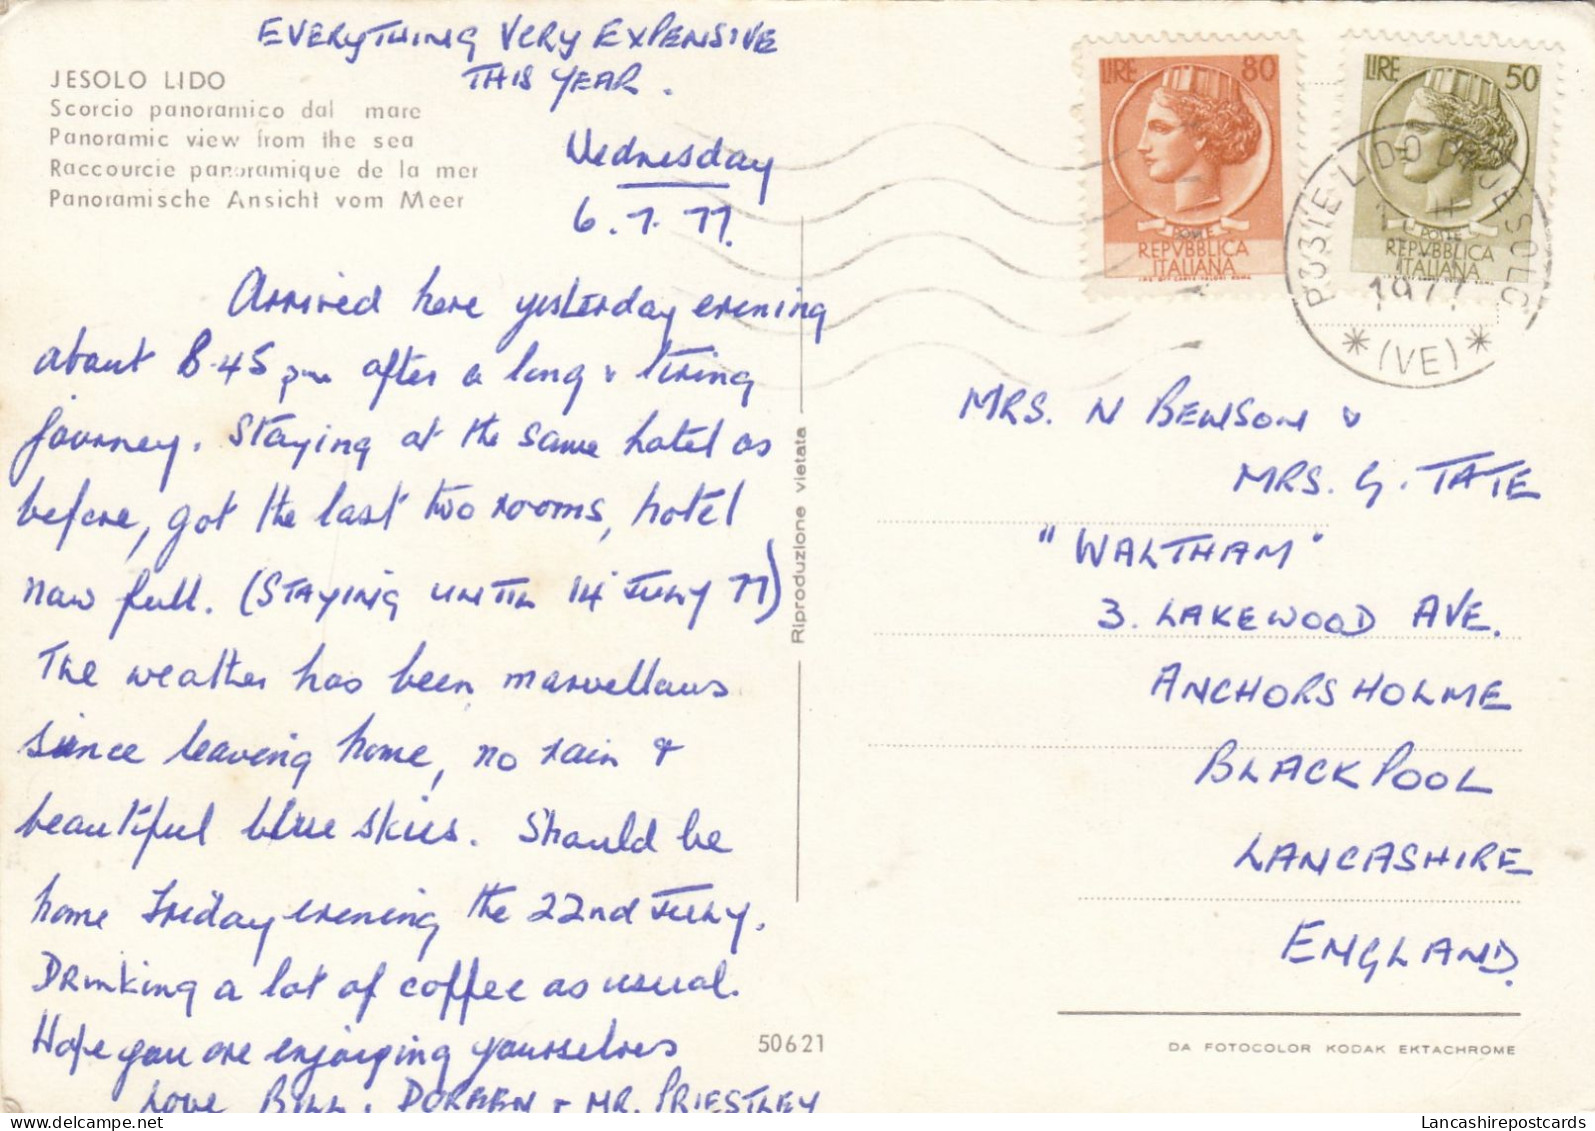 EVERYTHING VERY EXPENSIVE
THIS YEAR.
JESOLO LIDO
Scorcio panoramico dal mare
Panoramic view from the sea
Raccourcie panoramique de la mer
Panoramische Ansicht vom Meer
Wednesday
6.7.77.
Arrived here yesterday evening
about 8.45 pm after a long & tiring
journey. Staying at the same hotel as
before, got the last two rooms, hotel
now full. (STAYING UNTIL 14 JULY 77)
The weather has been marvellous
since leaving home, no rain &
beautiful blue skies. Should be
home Friday evening the 22nd JULY.
Drinking a lot of coffee as usual.
Hope you are enjoying yourselves
Love BILL, DOREEN & MR. PRIESTLEY
50621
Riproduzione vietata
LIRE 80
POSTE
REPVBBLICA
ITALIANA
LIRE 50
POSTE
REPVBBLICA
ITALIANA
POSTE LIDO DI JESOLO
1977
* (VE) *
MRS. N BEWSON &
MRS. G. TATE
"WALTHAM"
3. LAKEWOOD AVE.
ANCHORSHOLME
BLACKPOOL
LANCASHIRE
ENGLAND.
DA FOTOCOLOR KODAK EKTACHROME
Lancashirepostcards